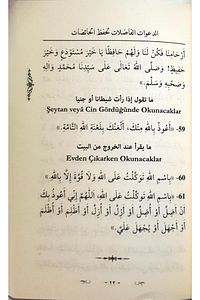 الدعوات الفاضلات لحفظ الحائضات
أَرْحَامِنَا فَكُنْ لَنَا وَلَهُمْ حَافِظًا يَا خَيْرَ مُسْتَوْدَعٍ وَخَيْرَ
حَفِيظٍ! وَصَلَّى اللهُ تَعَالَى عَلَى سَيِّدِنَا مُحَمَّدٍ وَآلِهِ
وَصَحْبِهِ وَسَلَّمَ.»
ما تقول إذا رأت شيطانا أو جنيا
Şeytan veyâ Cin Gördüğünde Okunacaklar
59- «أَعُوذُ بِاللهِ مِنْكَ، أَلْعَنُكَ بِلَعْنَةِ اللهِ التَّامَّةِ.»
ما يقرأ عند الخروج من البيت
Evden Çıkarken Okunacaklar
60- «بِاسْمِ اللهِ تَوَكَّلْتُ عَلَى اللهِ وَلَا قُوَّةَ إِلَّا بِاللهِ.»
61- «بِاسْمِ اللهِ تَوَكَّلْتُ عَلَى اللهِ، اَللّٰهُمَّ إِنِّي أَعُوذُ بِكَ
أَنْ أَضِلَّ أَوْ أُضَلَّ أَوْ أَزِلَّ أَوْ أُزَلَّ أَوْ أَظْلِمَ أَوْ أُظْلَمَ
أَوْ أَجْهَلَ أَوْ يُجْهَلَ عَلَيَّ.»